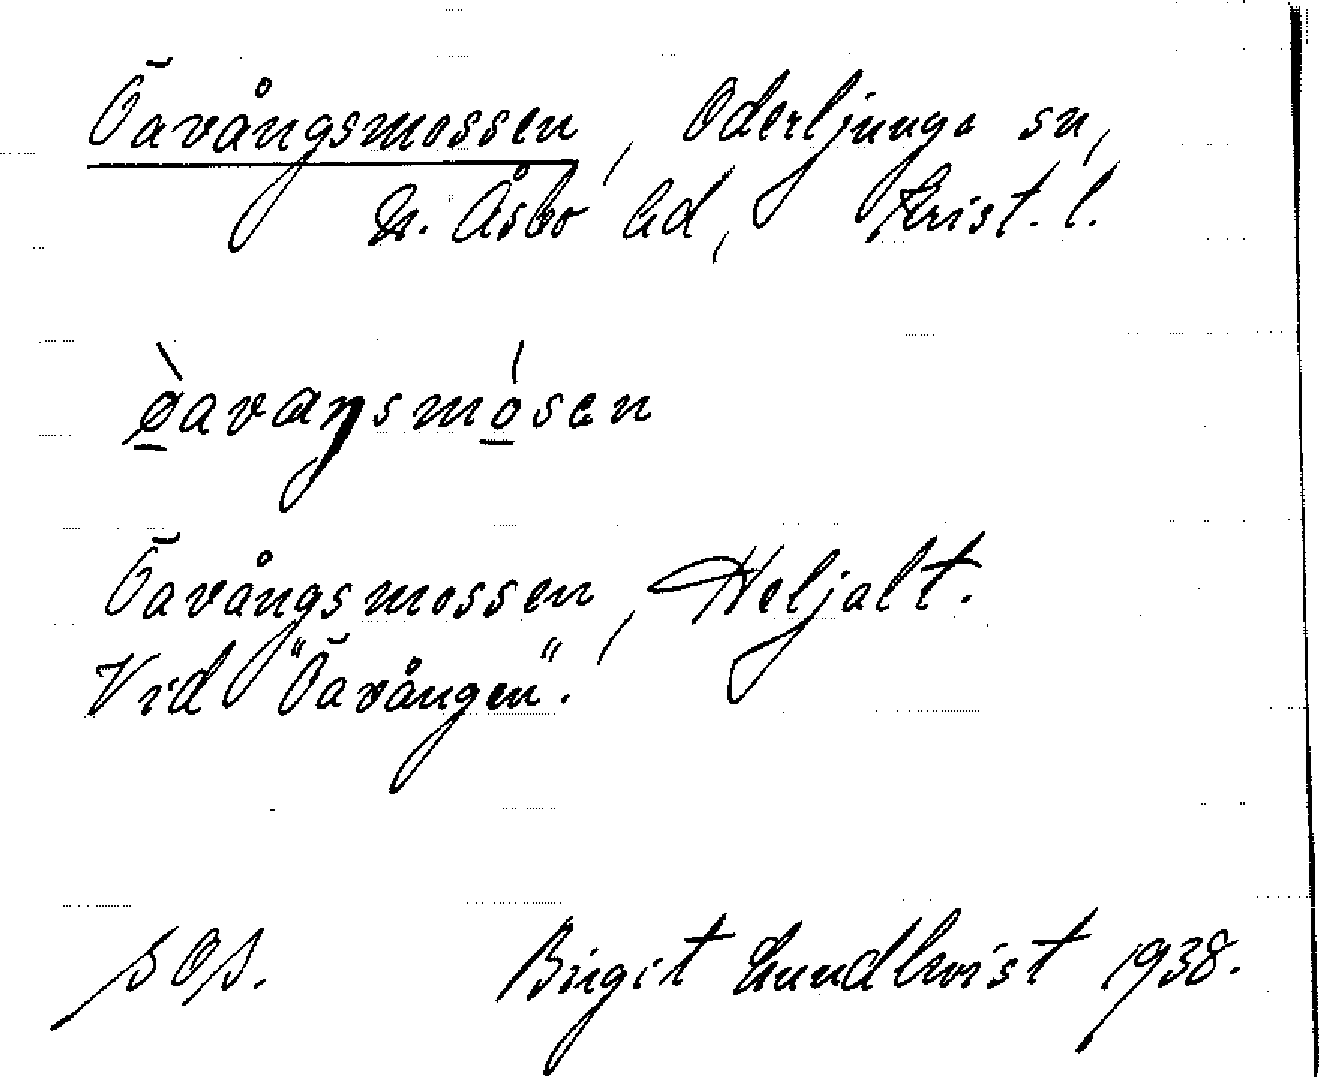 Öavångsmossen, Oderljunga sn,
N. Åsbo hd, Krist. l.
ø̠̀avaŋsmó̠sen
Öavångsmossen, Heljalt.
Vid "Öavången".
Birgit Lundkvist 1938.